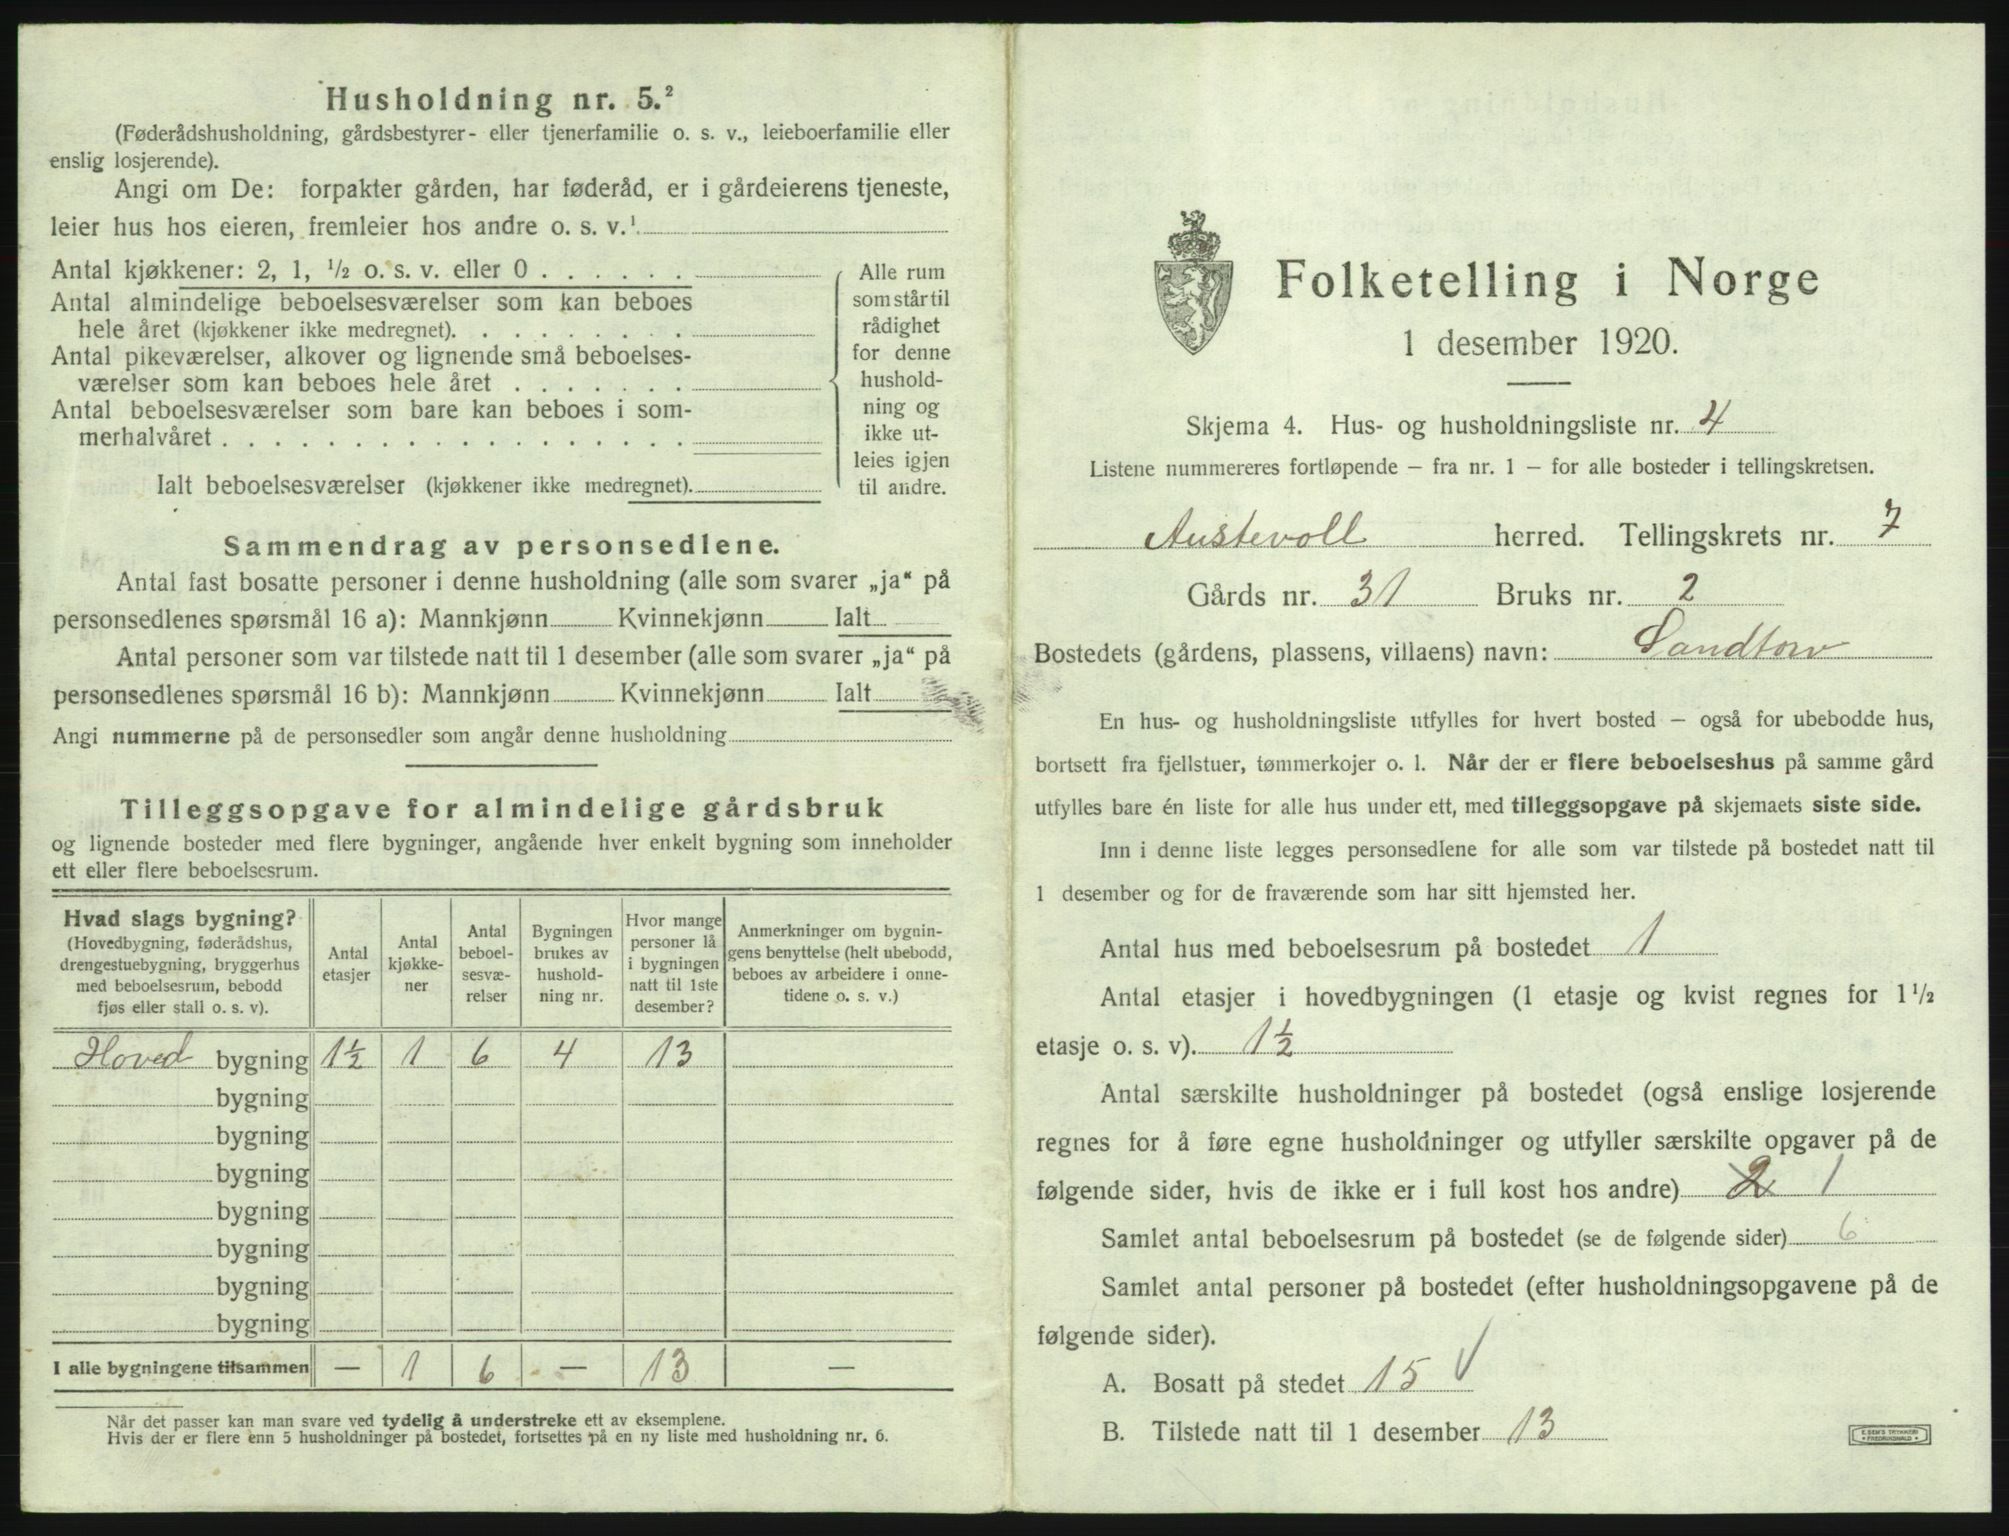 Husholdning nr. 5.²
(Føderådshusholdning, gårdsbestyrer- eller tjenerfamilie o. s. v., leieboerfamilie eller
enslig losjerende).
Angi om De: forpakter gården, har føderåd, er i gårdeierens tjeneste,
leier hus hos eieren, fremleier hos andre o. s. v.¹
Antal kjøkkener: 2, 1, ½ o. s. v. eller 0 . . . . . .
Antal almindelige beboelsesværelser som kan beboes
hele året (kjøkkener ikke medregnet). . . . . . . . .
Antal pikeværelser, alkover og lignende små beboelses-
værelser som kan beboes hele året . . . . . . .
Antal beboelsesværelser som bare kan beboes i som-
merhalvåret . . . . . . . . . . . . . . . . . .
Ialt beboelsesværelser (kjøkkener ikke medregnet).
Alle rum
som står til
rådighet
for denne
hushold-
ning og
ikke ut-
leies igjen
til andre.
Sammendrag av personsedlene.
Antal fast bosatte personer i denne husholdning (alle som svarer „ja“ på
personsedlenes spørsmål 16 a): Mannkjønn Kvinnekjønn Ialt
Antal personer som var tilstede natt til 1 desember (alle som svarer „ja“ på
personsedlenes spørsmål 16 b): Mannkjønn Kvinnekjønn Ialt
Angi nummerne på de personsedler som angår denne husholdning
Tilleggsopgave for almindelige gårdsbruk
og lignende bosteder med flere bygninger, angående hver enkelt bygning som inneholder
ett eller flere beboelsesrum.
Hvad slags bygning?
(Hovedbygning, føderådshus,
drengestuebygning, bryggerhus
med beboelsesrum, bebodd
fjøs eller stall o. s. v).
Antal
etasjer
Antal
kjøkke-
ner
Antal
beboel-
sesvæ-
relser
Bygningen
brukes av
hushold-
ning nr.
Hvor mange
personer lå
i bygningen
natt til 1ste
desember?
Anmerkninger om bygnin-
gens benyttelse (helt ubebodd,
beboes av arbeidere i onne-
tidene o. s. v.)
Hoved bygning 1½ 1 6 4 13
bygning
bygning
bygning
bygning
bygning
bygning
bygning
I alle bygningene tilsammen — 1 6 — 13 —
Når det passer kan man svare ved tydelig å understreke ett av eksemplene.
Hvis der er flere enn 5 husholdninger på bostedet, fortsettes på en ny liste med husholdning nr. 6.
Folketelling i Norge
1 desember 1920.
Skjema 4. Hus- og husholdningsliste nr. 4
Listene nummereres fortløpende – fra nr. 1 – for alle bosteder i tellingskretsen.
Austevoll herred. Tellingskrets nr. 7
Gårds nr. 31 Bruks nr. 2
Bostedets (gårdens, plassens, villaens) navn: Sandtorv
En hus- og husholdningsliste utfylles for hvert bosted – også for ubebodde hus,
bortsett fra fjellstuer, tømmerkojer o. l. Når der er flere beboelseshus på samme gård
utfylles bare én liste for alle hus under ett, med tilleggsopgave på skjemaets siste side.
Inn i denne liste legges personsedlene for alle som var tilstede på bostedet natt til
1 desember og for de fraværende som har sitt hjemsted her.
Antal hus med beboelsesrum på bostedet 1
Antal etasjer i hovedbygningen (1 etasje og kvist regnes for 1½
etasje o. s. v). 1½
Antal særskilte husholdninger på bostedet (også enslige losjerende
regnes for å føre egne husholdninger og utfyller særskilte opgaver på de
følgende sider, hvis de ikke er i full kost hos andre) 2 1
Samlet antal beboelsesrum på bostedet (se de følgende sider) 6
Samlet antal personer på bostedet (efter husholdningsopgavene på de
følgende sider).
A. Bosatt på stedet 15 √
B. Tilstede natt til 1 desember 13
E. SEM'S TRYKKERI
FREDRIKSHALD